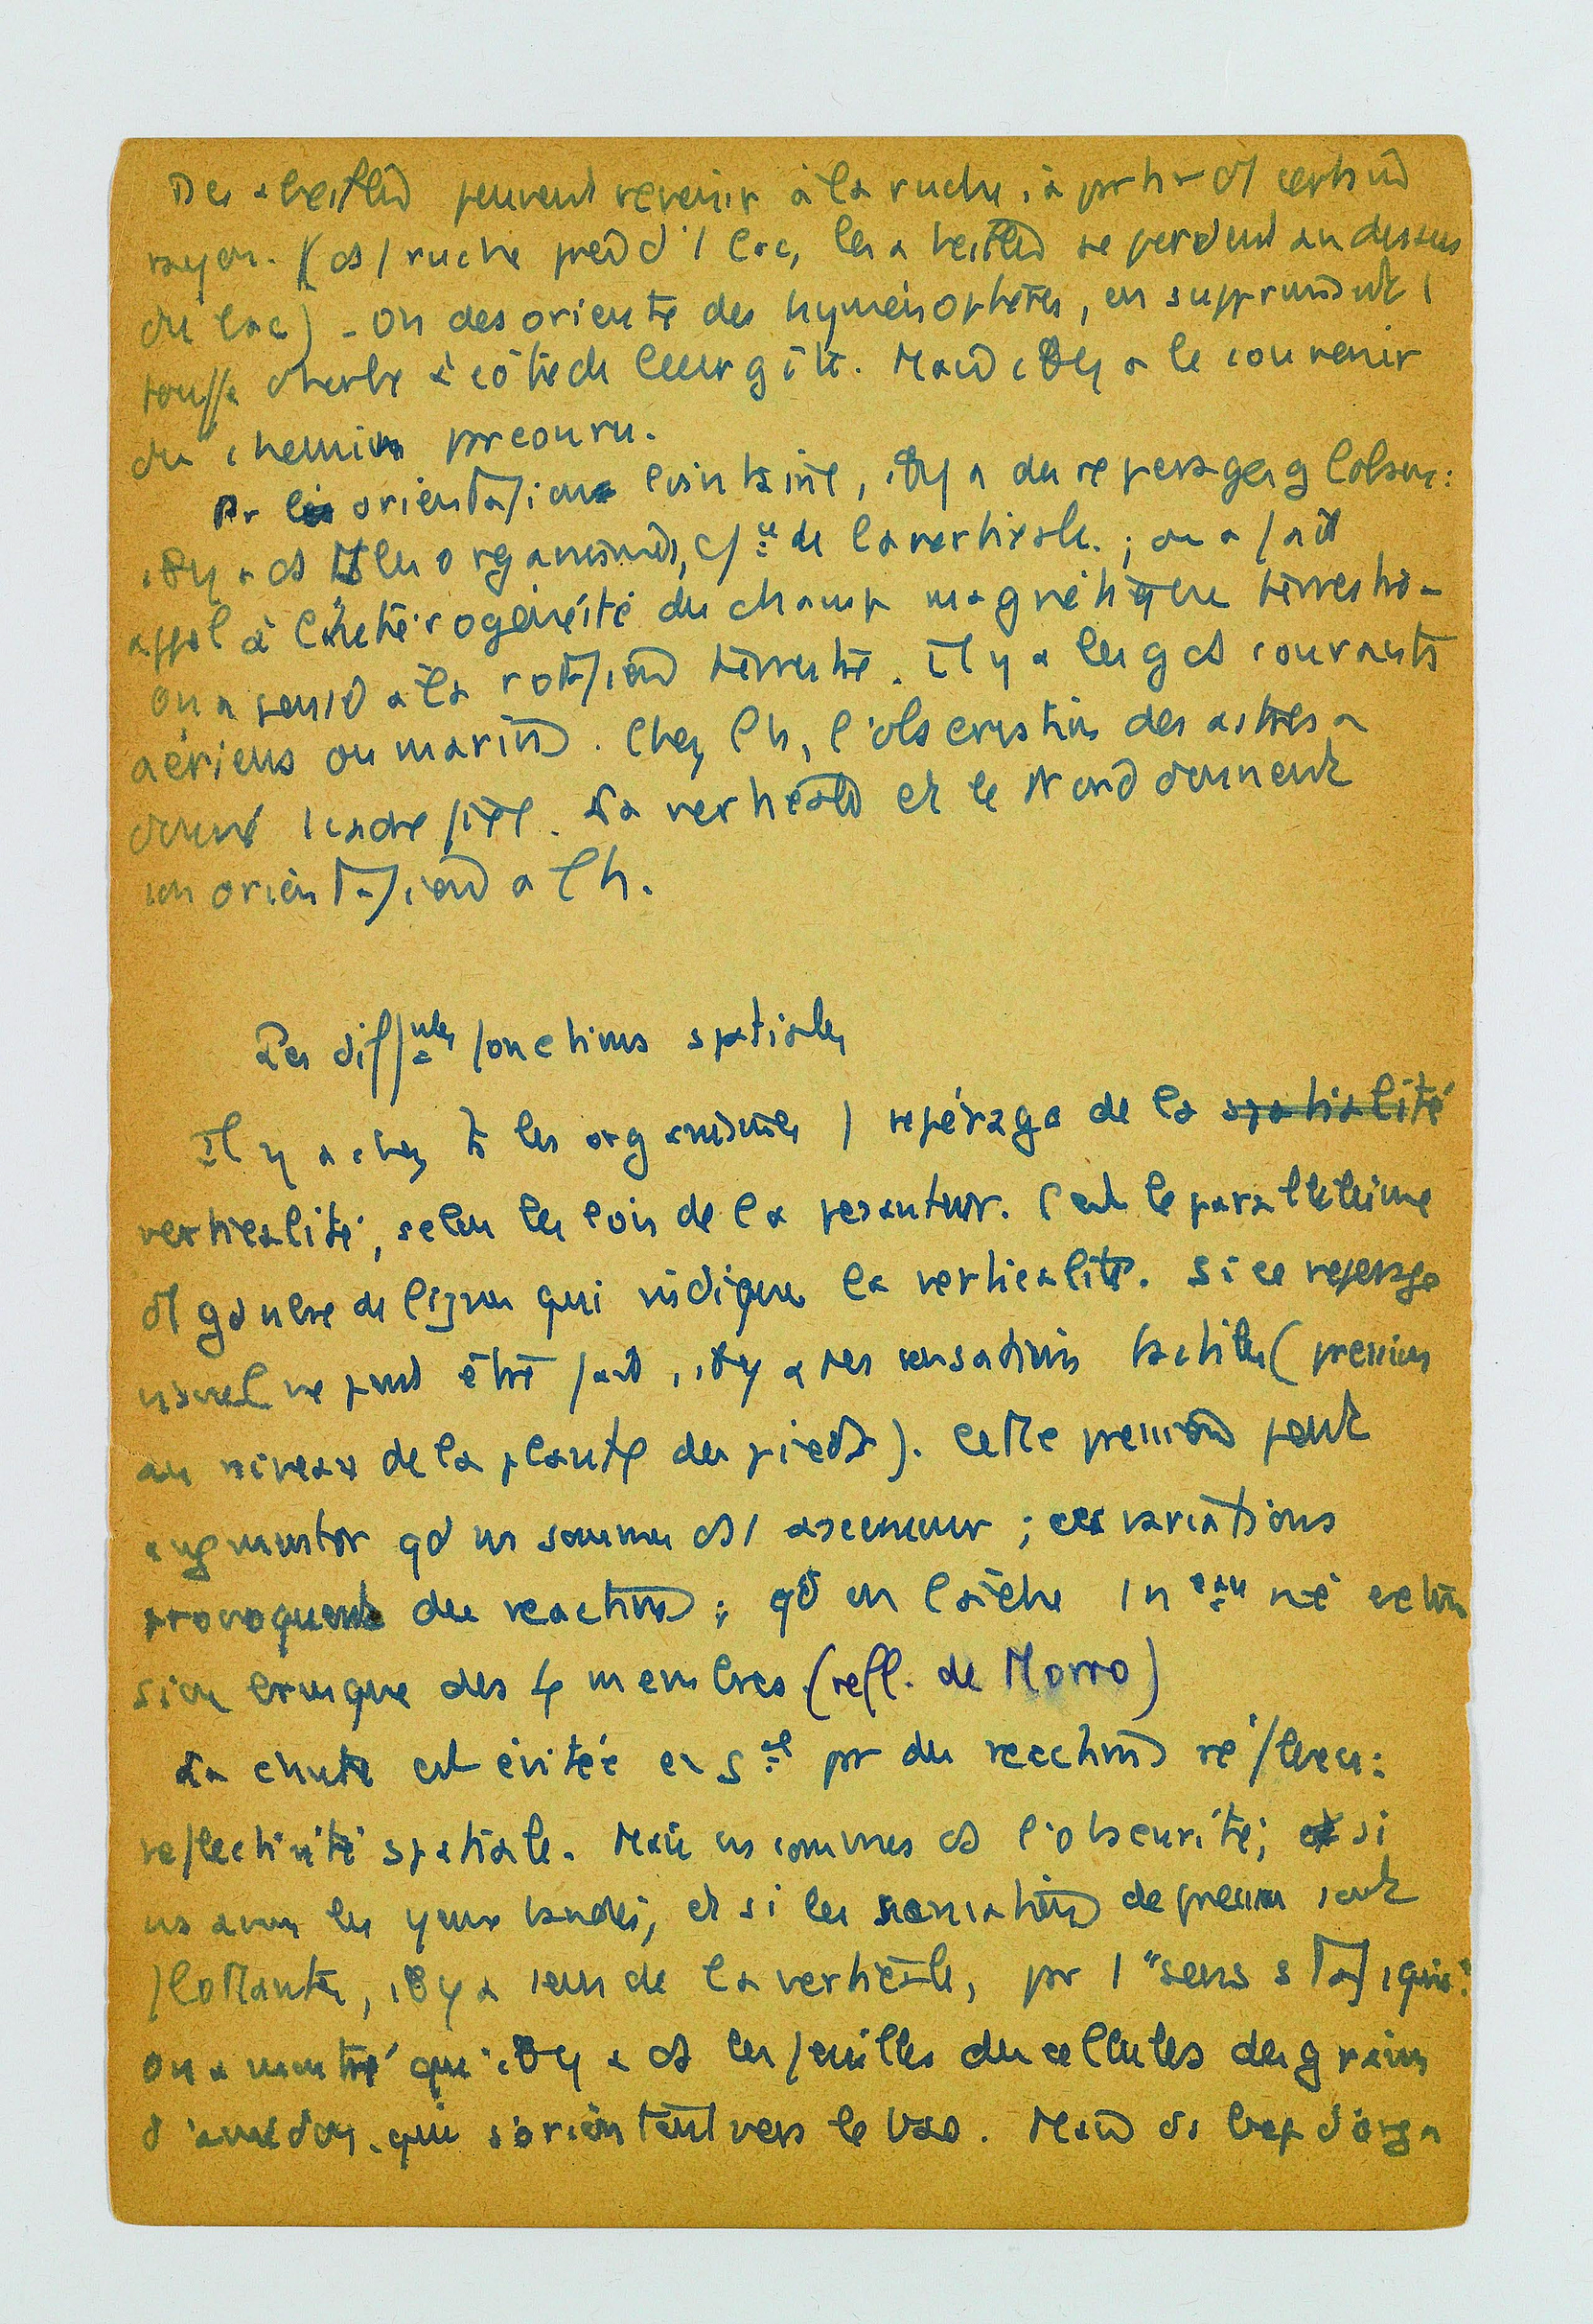 Des abeilles peuvent revenir à la ruche, à partir d'1 certain
rayon. (ds 1 ruche près d'1 lac, les abeilles se perdent au dessus
du lac) - On desoriente des hyménoptères, en supprimant 1
touffe d'herbe à côté de leur gîte. Mais il y a le souvenir
du chemin parcouru.
Pr l' orientation lointaine, il y a des reperages globaux:
il y a ds ts les organismes, de la verticale. ; on a fait
appel à l'hétérogénéité du champ magnétique terrestre -
on a pensé à la rotation terrestre. Il y a les gds courants
aériens ou marins. Chez l'h, l'observation des astres a
donné 1 cadre fixe. La verticale et le Nord donnent
son orientation a l'h.
Les diffntes fonctions spatiales
Il y a chez ts les organismes 1 repérage de la spatialité
verticalité, selon les lois de la pesanteur. C'est le parallélisme
d'1 gd nbre de lignes qui indique la verticalité. Si ce reperage
visuel ne peut être fait, il y a des sensations tactiles (pression
au niveau de la plante des pieds). Cette pression peut
augmenter qd ns sommes ds 1 ascenseur ; ces variations
provoquent des reactions ; qd on lâche 1 n eau né exten
sion brusque des 4 membres (refl. de Morro)
La chute est évitée en gal par des reactions réflexes:
reflectivité spatiale. Mais ns sommes ds l'obscurité; si
ns avons les yeux bandés, et si les sensations de pression sont
flottantes, il y a sens de la verticale, par 1 "sens statique".
On a montré qu'il y a ds les feuilles des cellules des grains
d'amidon qui s'orientent vers le bas. Mais ds bcp d'orga